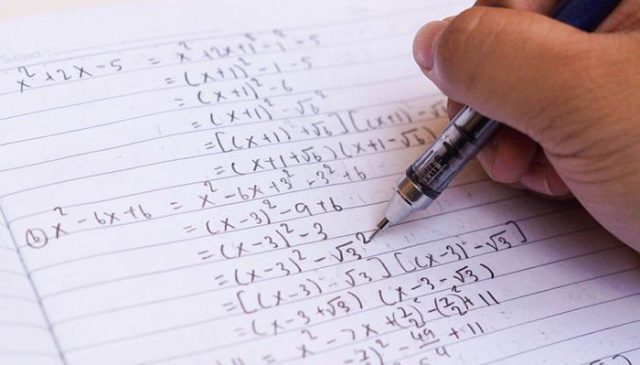 Subject
x² + 2x - 5 = x² + 2x + 1² - 1² - 5
= (x+1)² - 6
= (x+1)² - √6²
= [(x+1) + √6] [(x+1) - √6]
= (x+1+√6) (x+1-√6)
(b) x² - 6x + 6 = x² - 6x + 3² - 3² + 6
= (x-3)² - 9 + 6
= (x-3)² - 3
= (x-3)² - √3²
= [(x-3) - √3] [(x-3) - √3]
= (x-3+√3) (x-3-√3)
11 = x² - 7x + (7/2)² - (7/2)² + 11
)² - 49/4 + 11